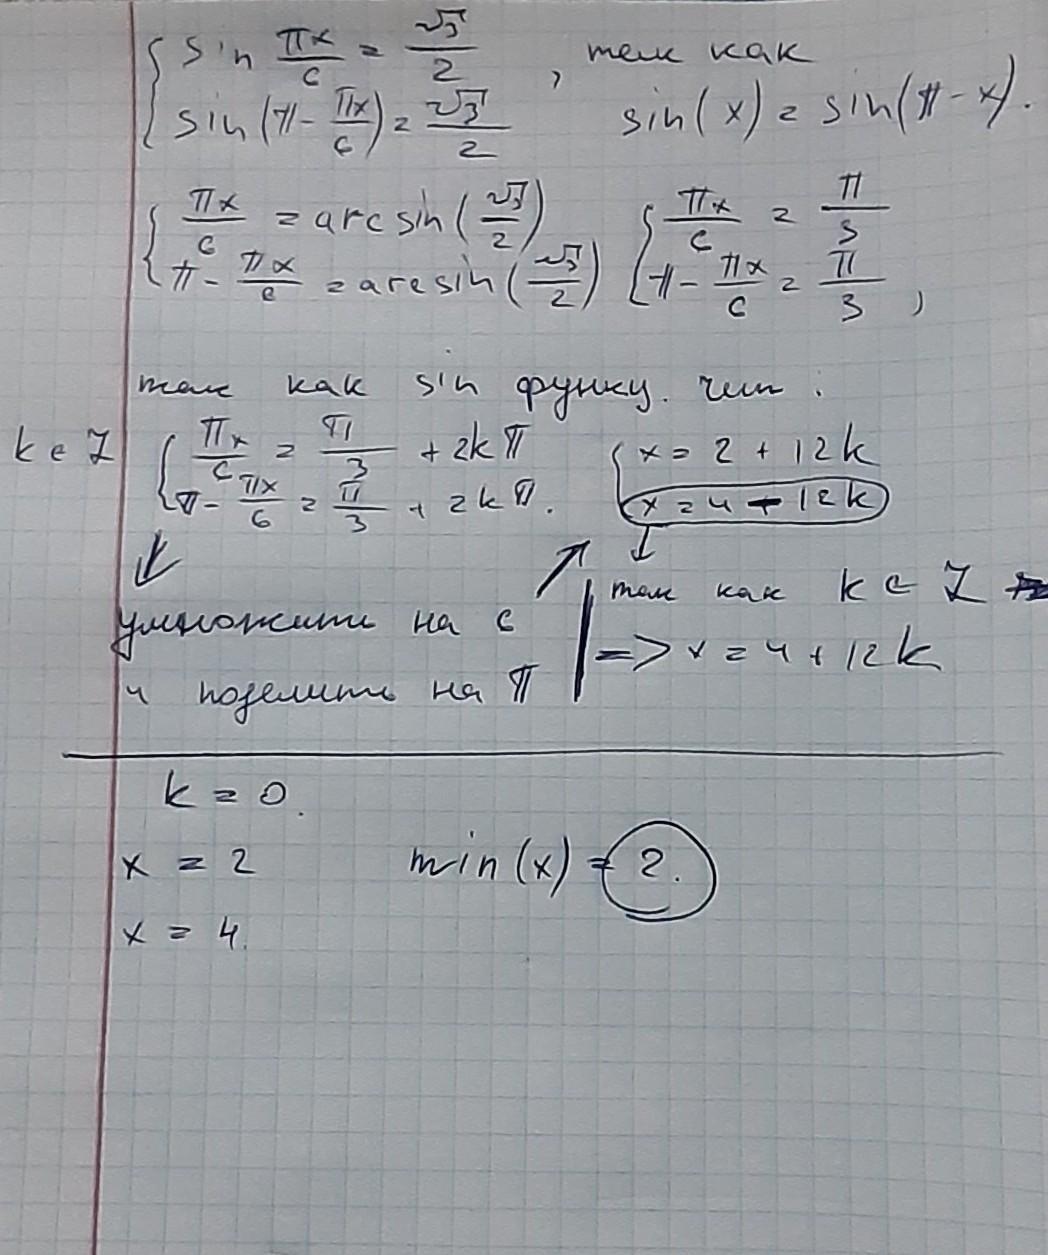 { sin πx/6 = √3/2
sin(π - πx/6) = √3/2 , так как sin(x) = sin(π - x).
{ πx/6 = arcsin(√3/2) { πx/6 = π/3
π - πx/6 = arcsin(√3/2) π - πx/6 = π/3 ,
так как sin функц. :
k ∈ Z { πx/6 = π/3 + 2kπ { x = 2 + 12k
π - πx/6 = π/3 + 2kπ. x = 4 - 12k
умножить на 6
и поделить на π
так как k ∈ Z
=> x = 4 + 12k
k = 0.
x = 2 min(x) = 2.
x = 4.